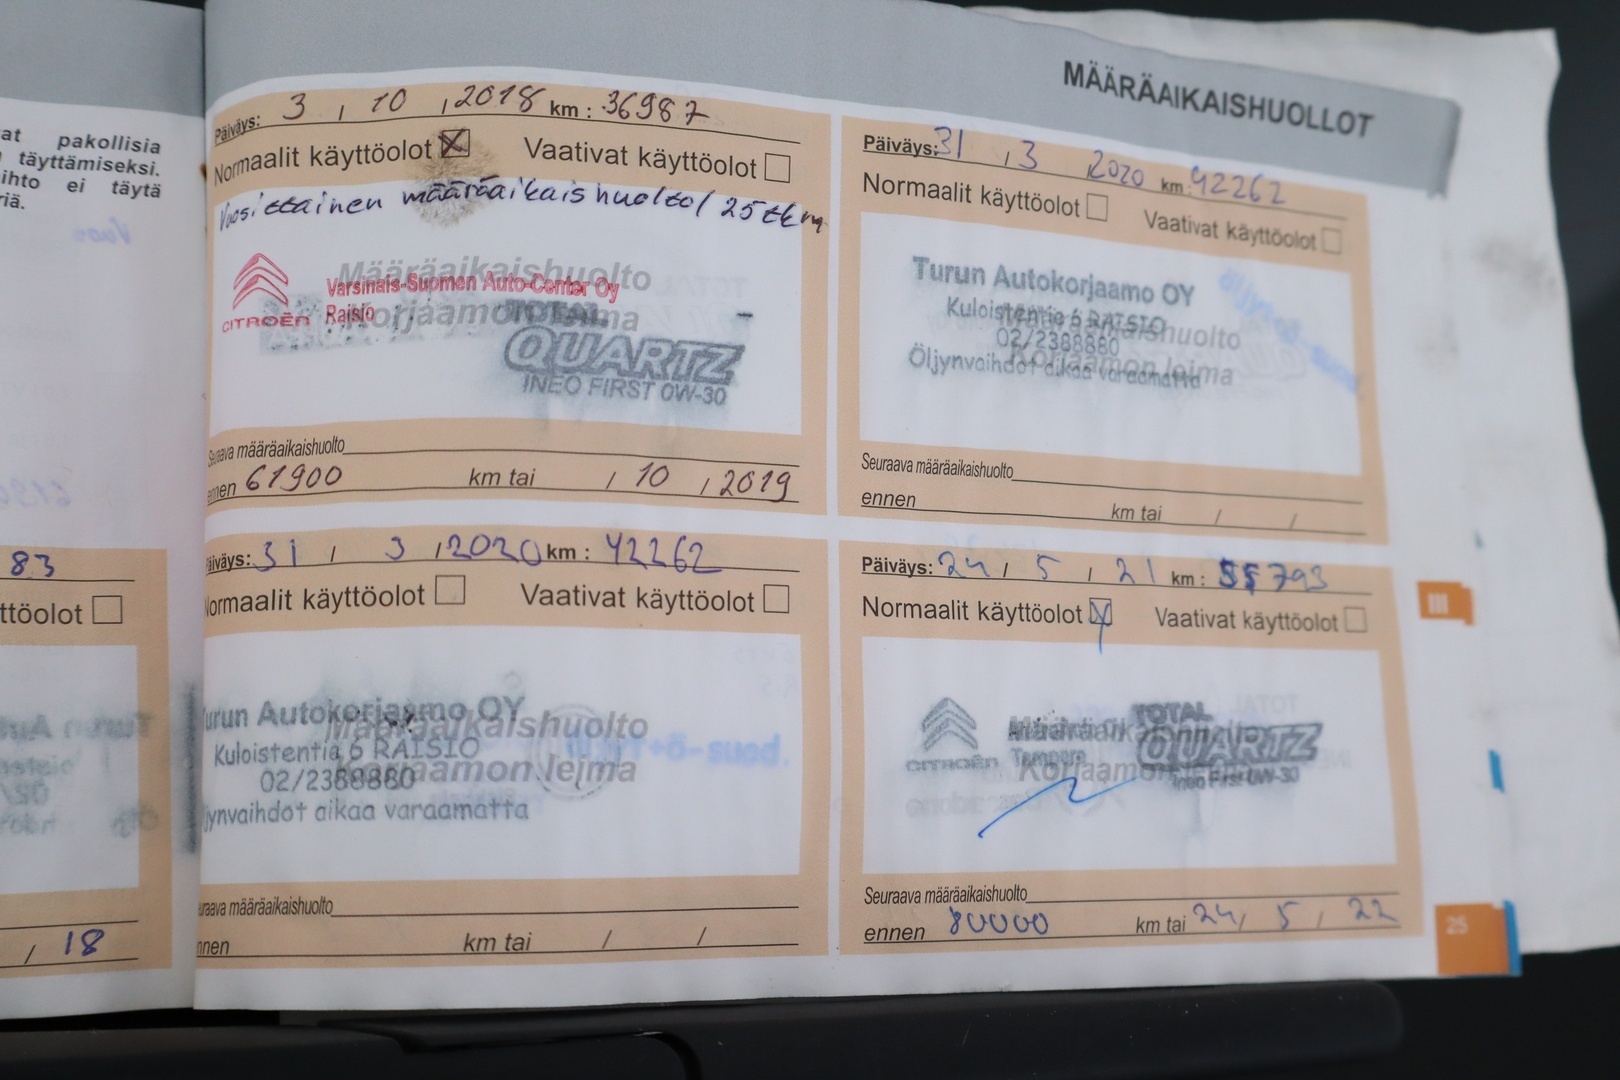 at pakollisia
täyttämiseksi.
ihto ei täytä
riä.
83
ttöolot
/ 18
MÄÄRÄAIKAISHUOLLOT
Päiväys: 3 / 10 / 2018 km : 36987
Normaalit käyttöolot Vaativat käyttöolot
Vuosittainen määräaikaishuolto / 25 tkm
Määräaikaishuolto
Korjaamon leima
CITROËN
Varsinais-Suomen Auto-Center Oy
Raisio
TOTAL
QUARTZ
INEO FIRST 0W-30
Seuraava määräaikaishuolto
ennen 61900 km tai / 10 / 2019
Päiväys: 31 / 3 / 2020 km : 42262
Normaalit käyttöolot Vaativat käyttöolot
Määräaikaishuolto
Korjaamon leima
Turun Autokorjaamo OY
Kuloistentie 6 RAISIO
02/2388880
Öljynvaihdot aikaa varaamatta
Seuraava määräaikaishuolto
ennen km tai / /
Päiväys: 31 / 3 2020 km : 42262
Normaalit käyttöolot Vaativat käyttöolot
Turun Autokorjaamo OY
Kuloistentie 6 RAISIO
02/2388880
Öljynvaihdot aikaa varaamatta
Määräaikaishuolto
Korjaamon leima
Seuraava määräaikaishuolto
ennen km tai / /
Päiväys: 24 / 5 / 21 km : 55793
Normaalit käyttöolot Vaativat käyttöolot
CITROËN
Tampere
Korjaamon
TOTAL
QUARTZ
Ineo First 0W-30
Seuraava määräaikaishuolto
ennen 80000 km tai 24 / 5 / 22
III
25